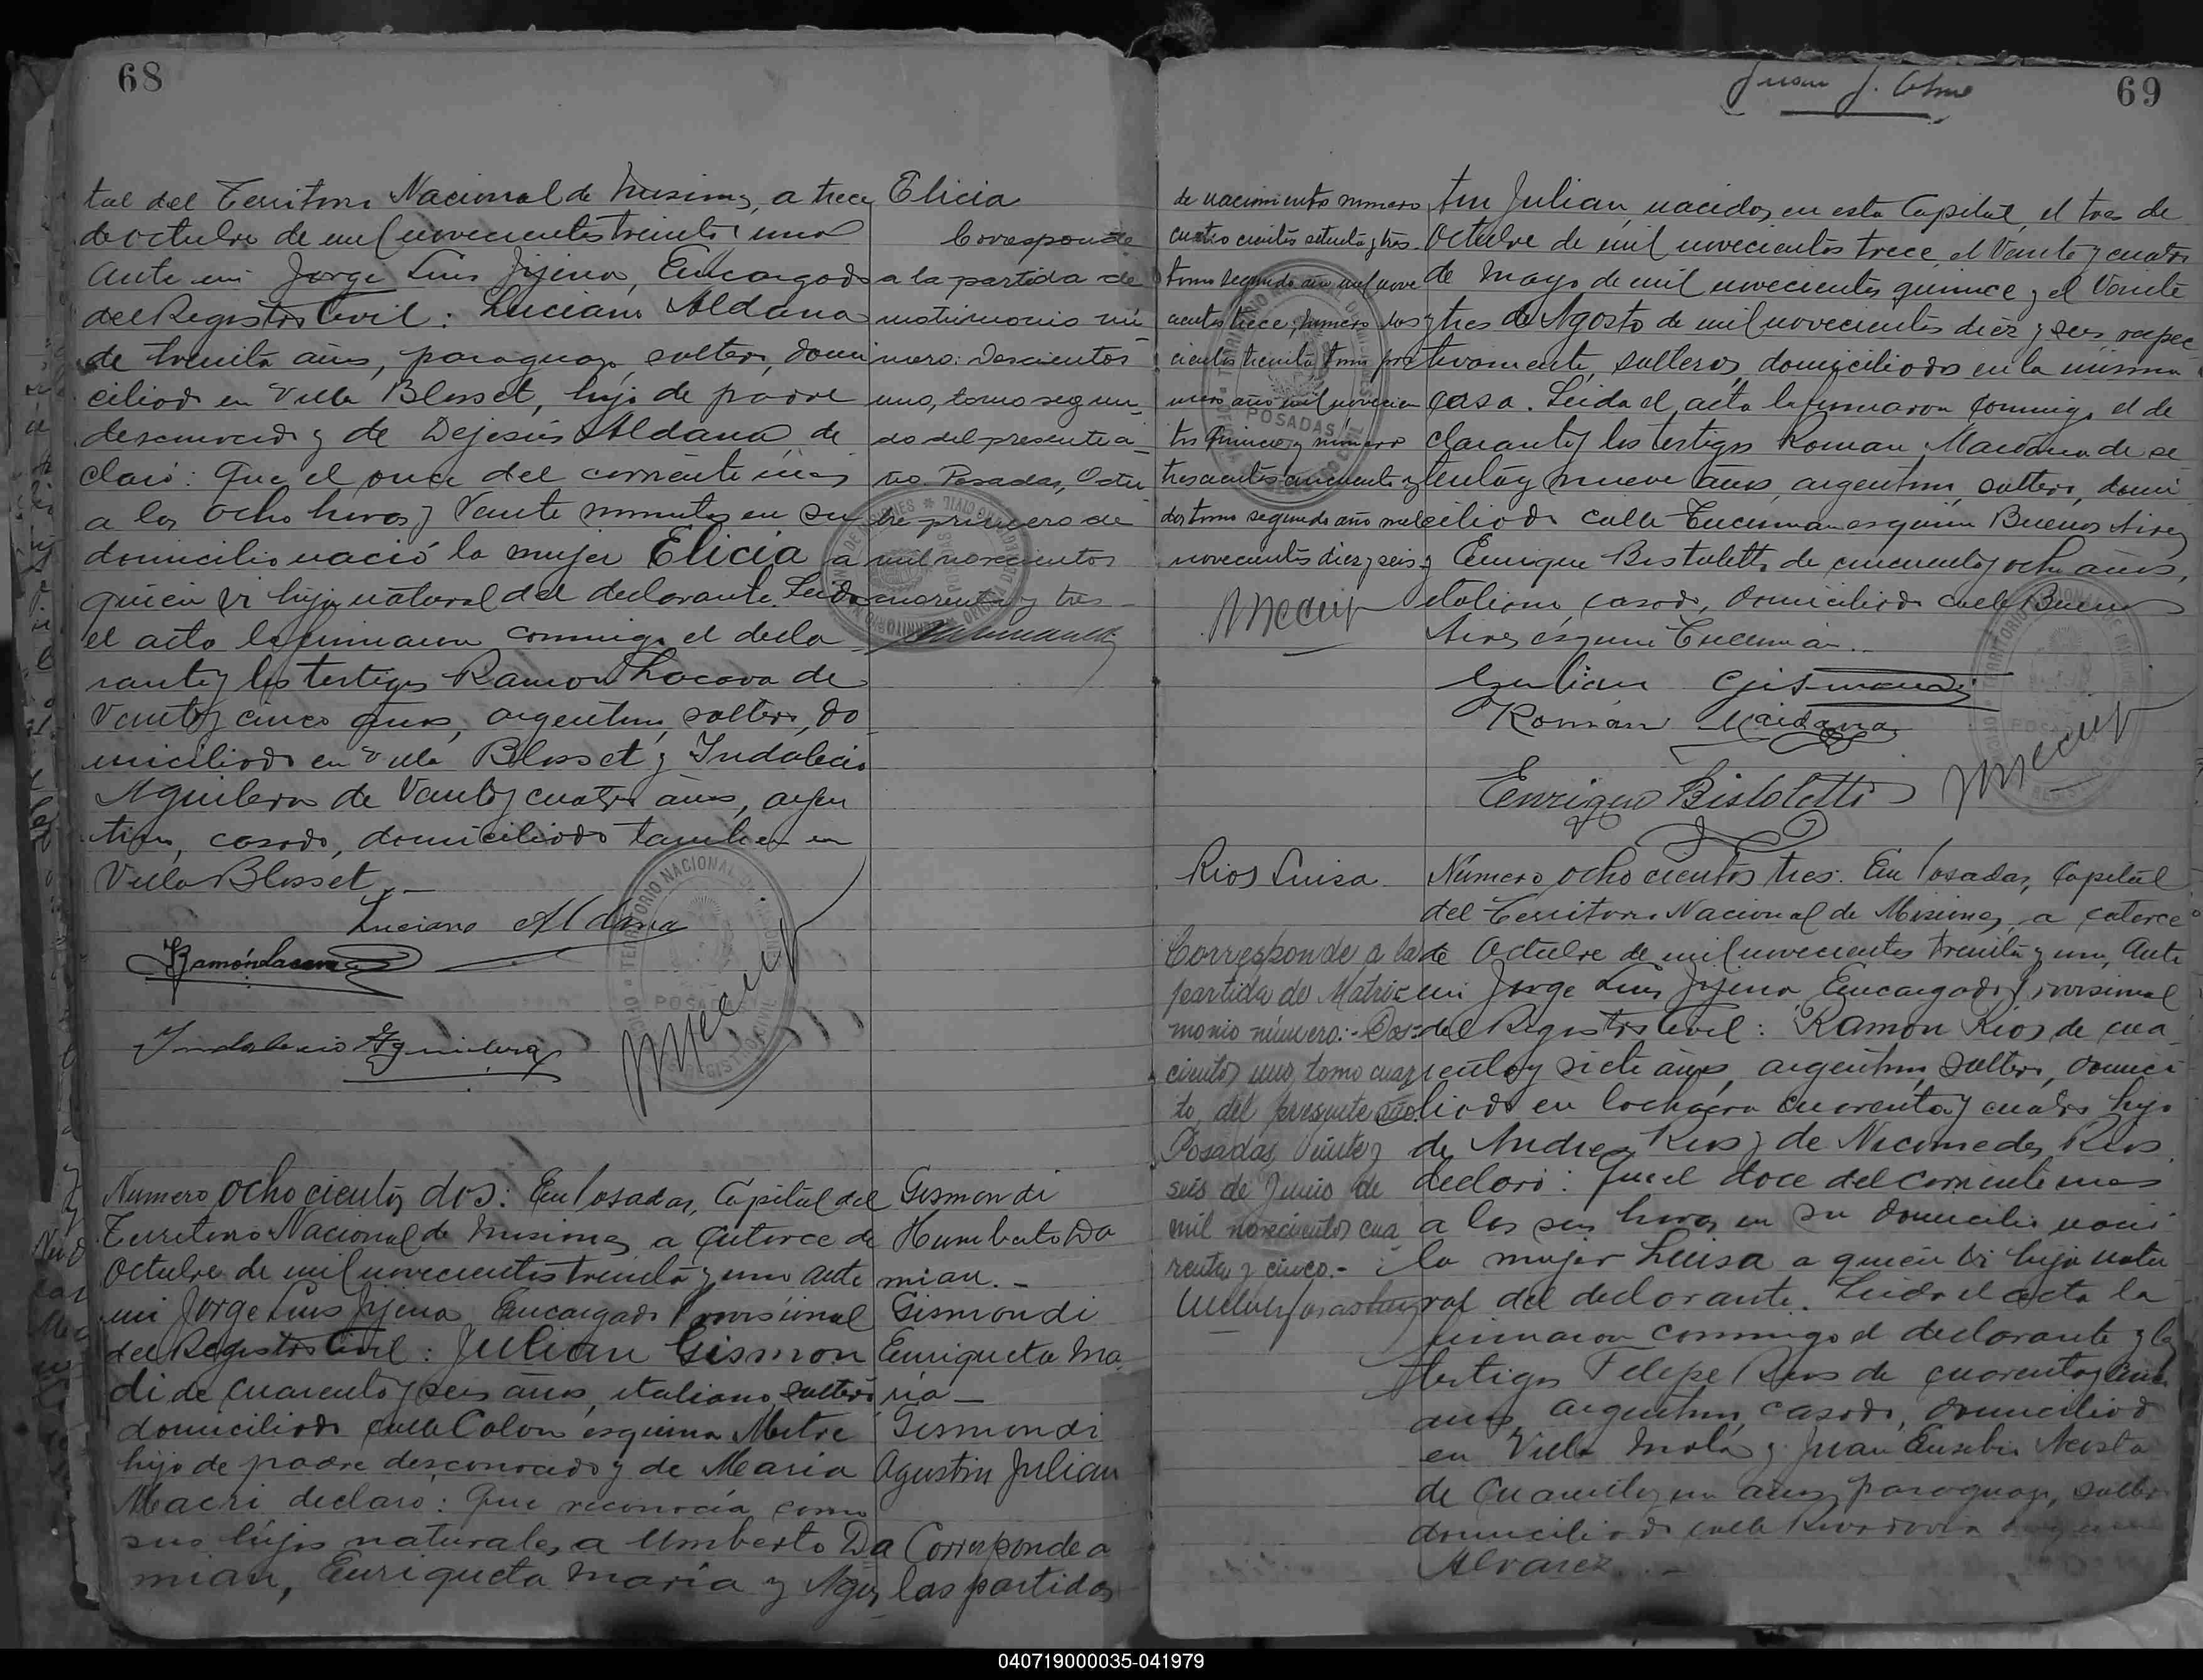 68
tal del Territorio Nacional de Misiones, a trece
de octubre de mil novecientos treinta y uno
ante mi Jorge Luis Jijena, Encargado
del Registro Civil: Luciano Aldana
de treinta años, paraguayo, soltero, domi
ciliado en Villa Blosset, hijo de padre
desconocido y de Dejesús Aldana de
claró: Que el once del corriente mes
a las ocho horas y veinte minutos en su
domicilio nació la mujer Elicia a
quien es hija natural del declarante. Leida
el acta la firmaron conmigo el decla
rante y los testigos Ramon Lacava de
veinte y cinco años, argentino, soltero, do
miciliado en Villa Blosset y Indalecio
Aguilera de veinte y cuatro años, argen
tino, casado, domiciliado tambien en
Villa Blosset.
Luciano Aldana
Ramón Lacava
Indalecio Aguilera
Elicia
Corresponde
a la partida de
matrimonio nú
mero: Doscientos
uno, tomo segun
do del presente a-
ño. Posadas, Octu
bre primero de
mil novecientos
cuarenta y tres
Numero ochocientos dos: En Posadas, Capital del
Territorio Nacional de Misiones a catorce de
Octubre de mil novecientos treinta y uno ante
mi Jorge Luis Jijena Encargado Provisional
del Registro Civil: Julian Gismon
di de cuarenta y seis años, italiano, soltero
domiciliado calle Colon esquina Mitre
hijo de padre desconocido y de Maria
Macri declaro: Que reconocía como
sus hijos naturales a Umberto Da
mian, Enriqueta Maria y Agus
Gismondi
Humberto Da
mian.-
Gismondi
Enriqueta Ma
ria-
Gismondi
Agustin Julian
Corresponde a
las partidas
69
de nacimiento numero
cuatro cientos setenta y tres
tomo segundo año mil nove
cientos trece, numero dos
cientos treinta tomo pri
mero año mil novecien
tos quince y número
trescientos cincuenta y
dos tomo segundo año mil
novecientos diez y seis.
tin Julian, nacidos en esta Capital, el tres de
Octubre de mil novecientos trece, el veinte y cuatro
de Mayo de mil novecientos quince y el veinte
y tres de Agosto de mil novecientos diez y seis, respec
tivamente, solteros, domiciliados en la misma
casa. Leida el acta la firmaron conmigo el de
clarante y los testigos Roman Maidana de se
tenta y nueve años, argentino, soltero, domi
ciliado calle Tucuman esquina Buenos Aires
y Enrique Bistoletti de cincuenta y ocho años,
italiano, casado, domiciliado calle Buenos
Aires esquina Tucumán.
Gulian Gismondi
Román Maidana
Enrique Bistoletti
Rios Luisa
Corresponde a la
partida de Matri
monio número:- Dos-
cientos uno, tomo cuar
to, del presente año.
Posadas, Veinte y
seis de Junio de
mil novecientos cua
renta y cinco.-
Número ochocientos tres: En Posadas, Capital
del Territorio Nacional de Misiones, a catorce
de Octubre de mil novecientos treinta y uno, ante
mi Jorge Luis Jijena Encargado Provisional
del Registro Civil: Ramon Rios de cua
renta y siete años, argentino, soltero, domici
liado en la chacra cuarenta y cuatro hijo
de Andres Rios y de Nicomedes Rios.
declaró: Que el doce del corriente mes
a las seis horas en su domicilio nació
la mujer Luisa a quien es hija natu
ral del declarante. Leida el acta la
firmaron conmigo el declarante y los
testigos Felipe Rios de cuarenta y
años, argentino, casado, domiciliado
en Villa Mola y Juan Eusebio Acosta
de cuarenta y un años, paraguayo, soltero
domiciliado calle Rivadavia
Alvarez.
040719000035-041979